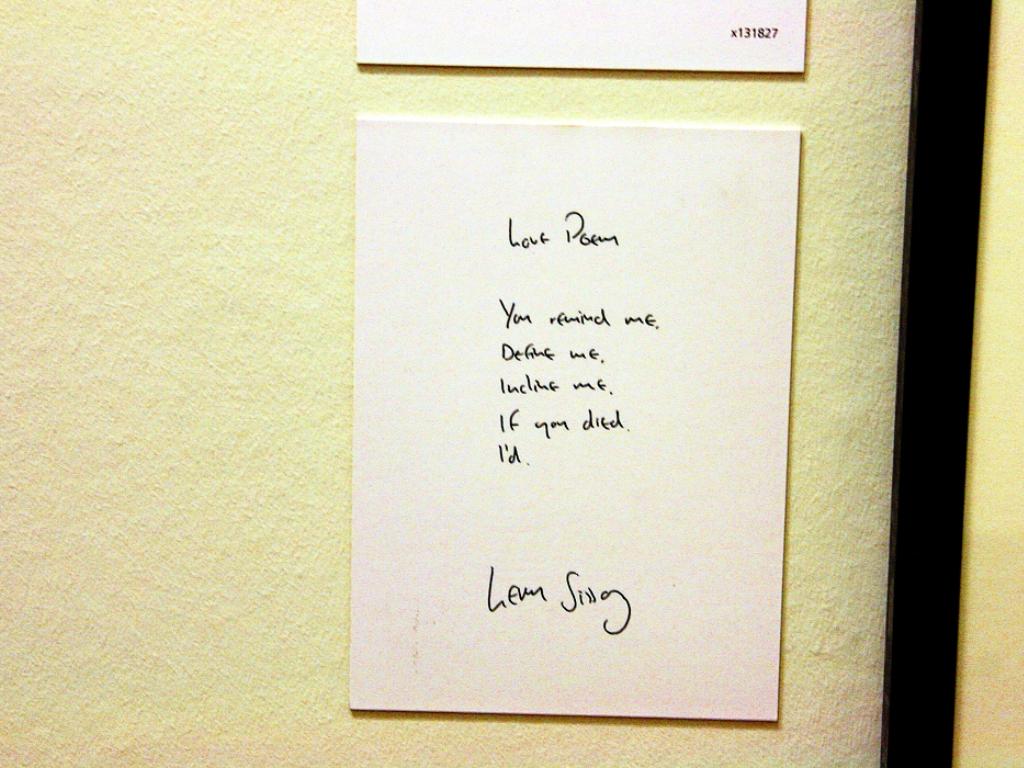 x131827
Love Poem
You remind me.
Define me.
Incline me.
If you died.
I'd.
Lemn Sissay